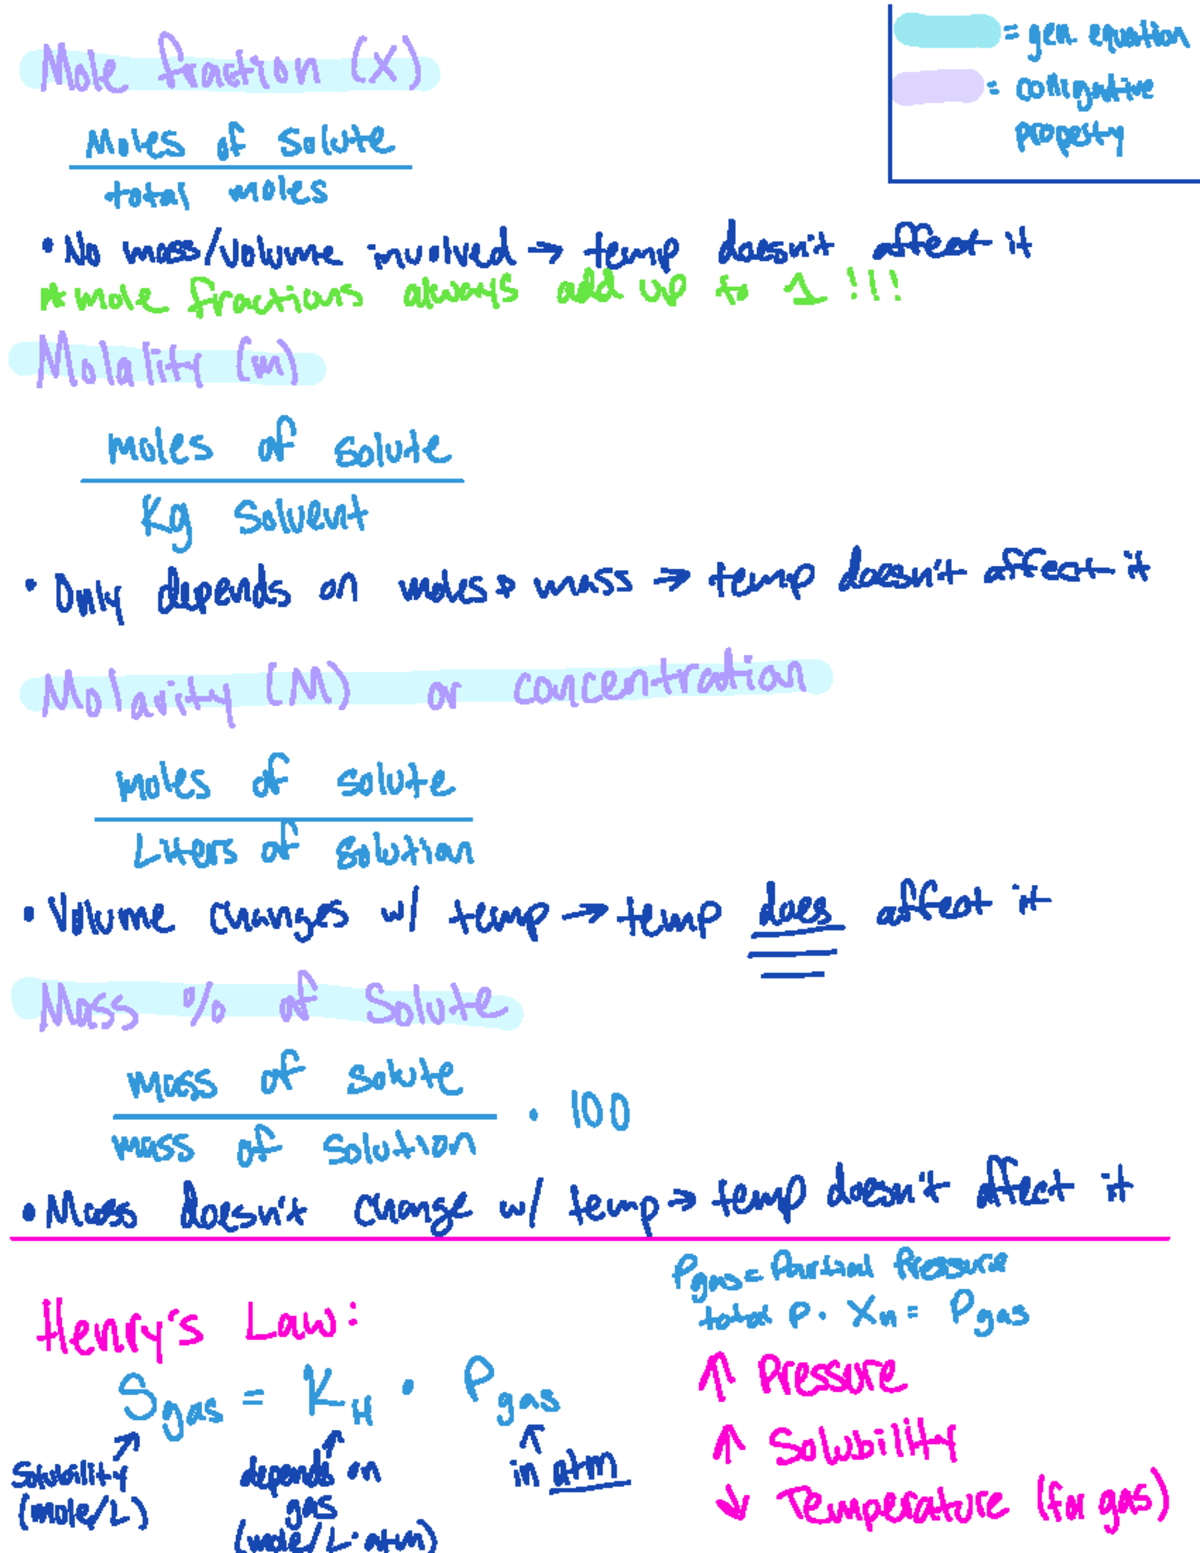 = gen. equation
= colligative
property
Mole fraction (X)
Moles of solute
total moles
• No mass/volume involved → temp doesn't affect it
* mole fractions always add up to 1!!!
Molality (m)
moles of solute
Kg solvent
• Only depends on moles & mass → temp doesn't affect it
Molarity (M) or concentration
moles of solute
Liters of solution
• Volume changes w/ temp → temp does affect it
Mass % of Solute
mass of solute
mass of solution
• 100
• Mass doesn't change w/ temp → temp doesn't affect it
Pgas = Partial Pressure
total P • Xn = Pgas
Henry's Law:
Sgas = KH • Pgas
Solubility
(mole/L)
depends on
gas
(mole/L·atm)
in atm
↑ Pressure
↑ Solubility
↓ Temperature (for gas)